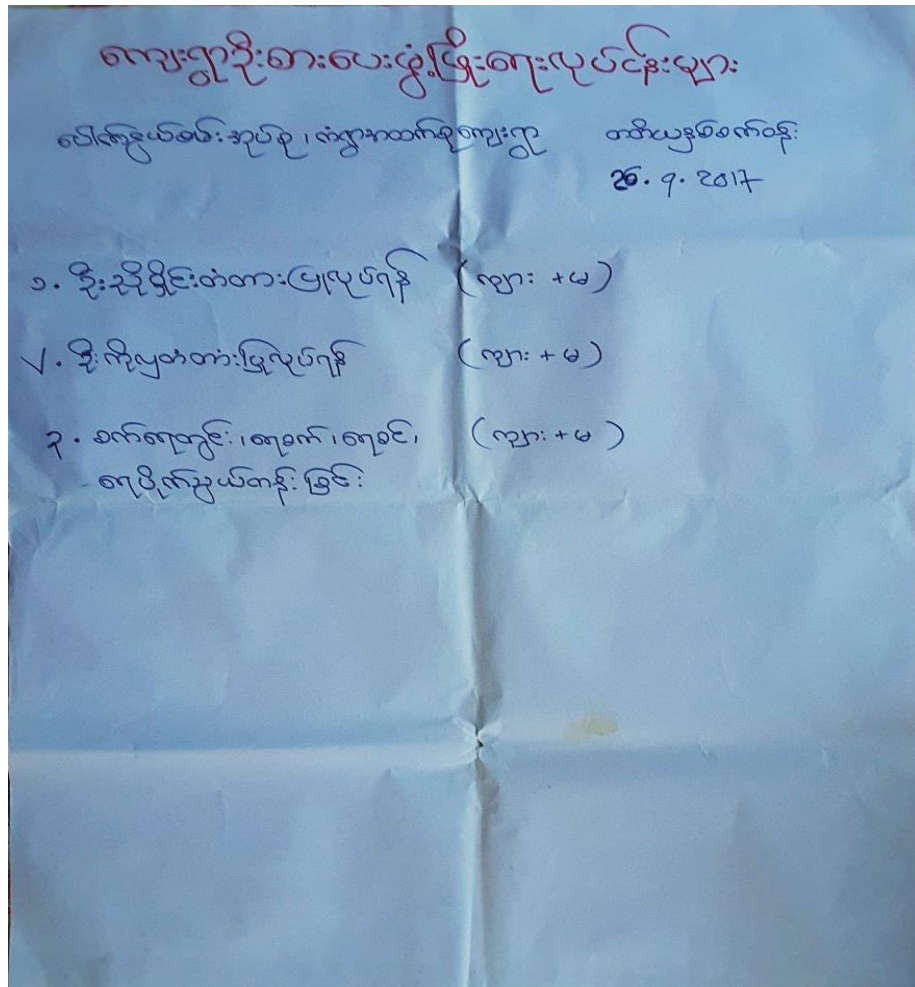 ကျေးရွာဦးစားပေးဖွံ့ဖြိုးရေးလုပ်ငန်းများ
ပေါက်နွယ်စမ်းအုပ်စု၊ ကံရွာအထက်စုကျေးရွာ တတိယနှစ်စက်ဝန်း
26. 9. 2017
၁. ဦးညိုမှိုင်းတံတားပြုလုပ်ရန် (ကျား + မ)
၂. ဦးကိုလှတံတားပြုလုပ်ရန် (ကျား + မ)
၃. စက်ရေတွင်း၊ ရေစက်၊ ရေစင်၊ (ကျား + မ)
ရေပိုက်သွယ်တန်းခြင်း